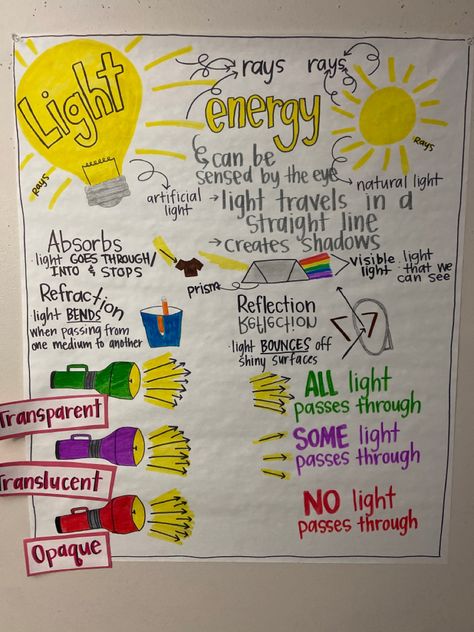 Light
energy
rays rays
RAYS
RAYS
can be
sensed by the eye
artificial
light
natural light
→light travels in a
straight line
→creates shadows
Absorbs
· light GOES THROUGH/
INTO & STOPS
prism
visible : light
light that we
can see
Refraction
· light BENDS
when passing from
one medium to another
Reflection
Reflection
· light BOUNCES off
shiny surfaces
Transparent
ALL light
passes through
Translucent
SOME light
passes through
Opaque
NO light
passes through